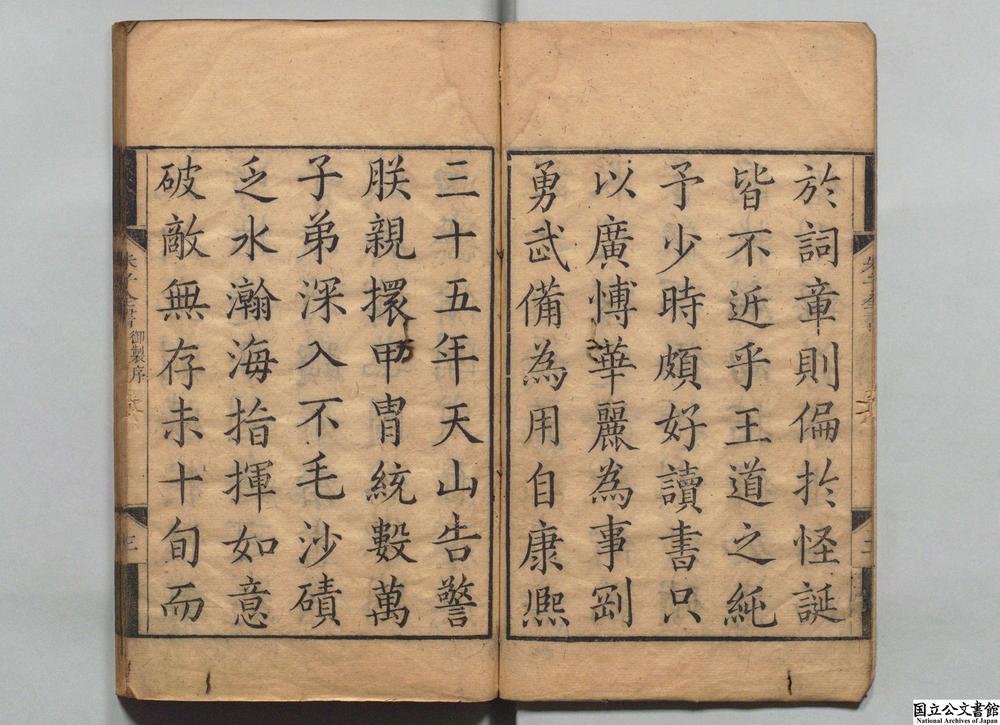 於詞章則偏於怪誕
皆不近乎王道之純
予少時頗好讀書只
以廣博華麗為事剛
勇武備為用自康熙
三十五年天山告警
朕親擐甲冑統數萬
子弟深入不毛沙磧
乏水瀚海指揮如意
破敵無存未十旬而
朱子全書
御製序
三
国立公文書館
National Archives of Japan